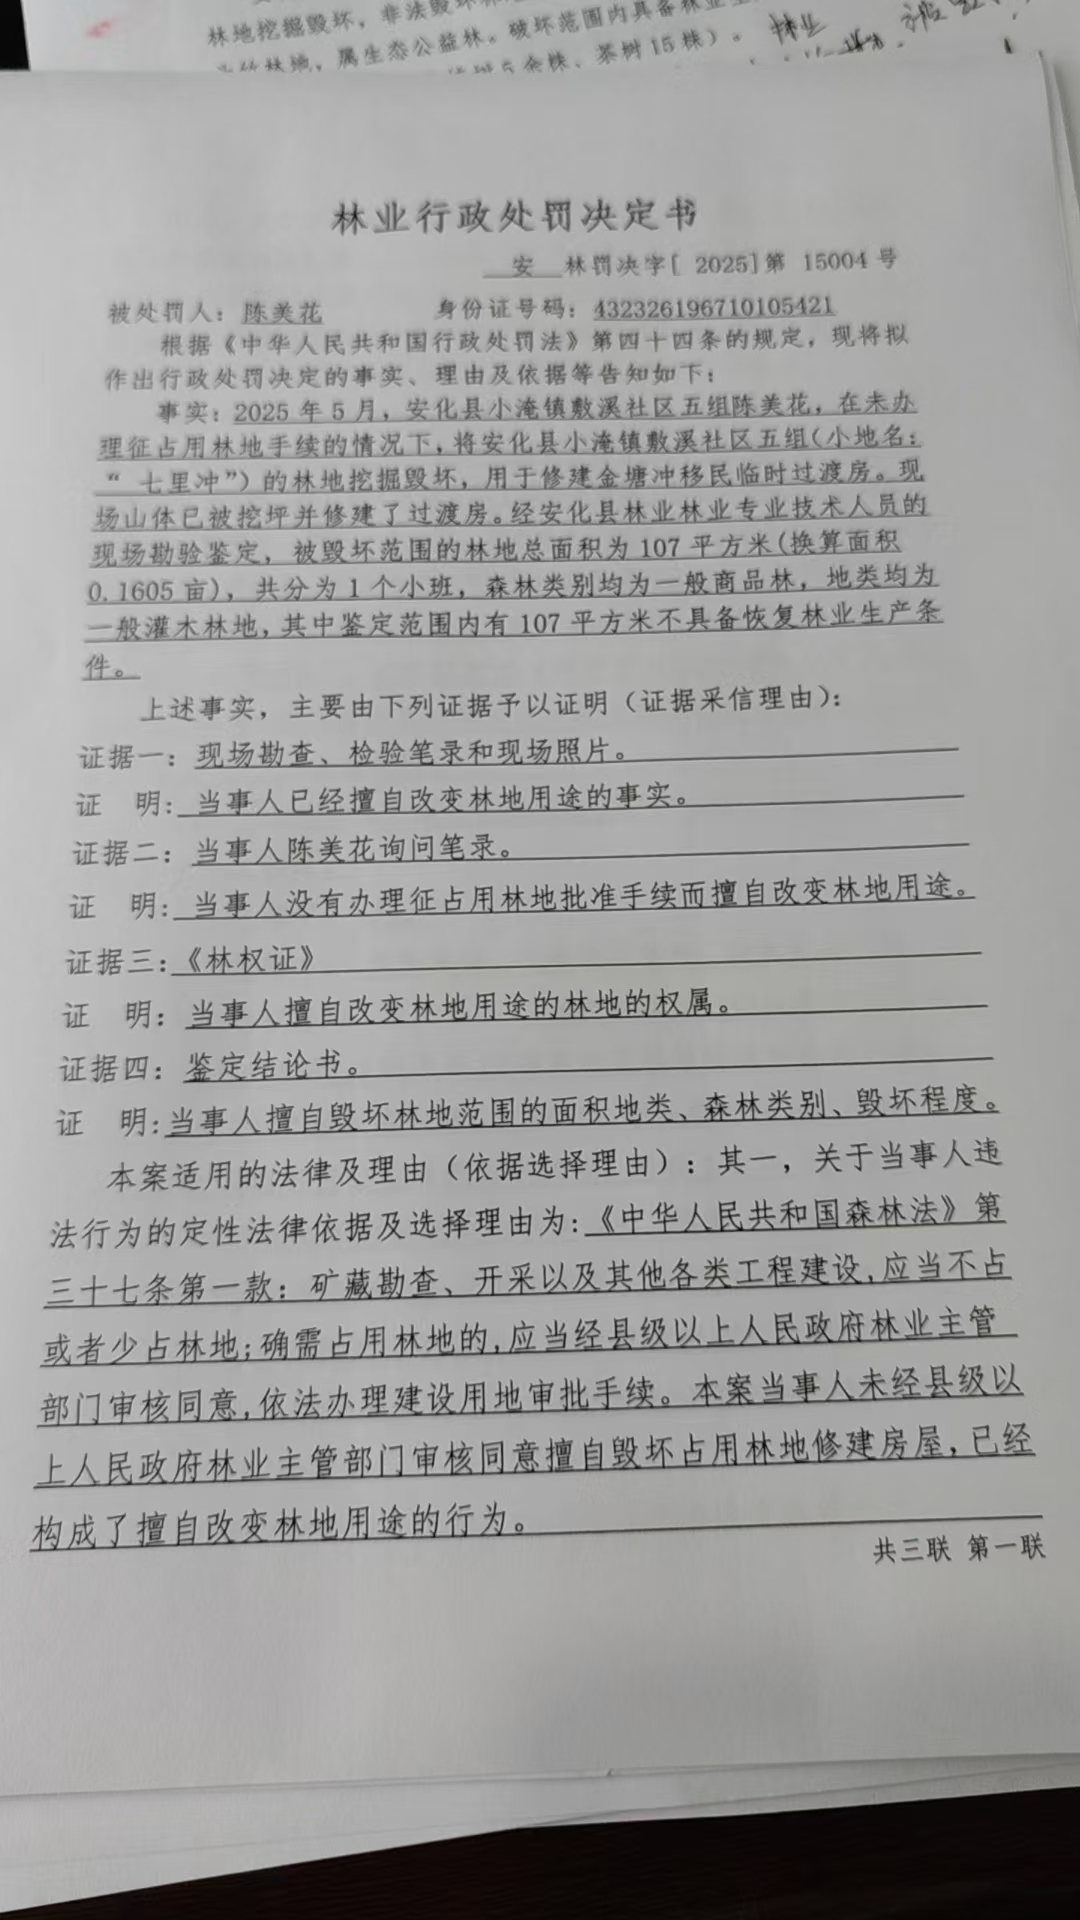 林地挖掘毁坏，非法毁坏林
地，属生态公益林。破坏范围内具备林业
余株、茶树15株）。 林业
林业行政处罚决定书
安 林罚决字[ 2025]第 15004 号
被处罚人：陈美花 身份证号码：432326196710105421
根据《中华人民共和国行政处罚法》第四十四条的规定，现将拟
作出行政处罚决定的事实、理由及依据等告知如下：
事实：2025 年 5 月，安化县小淹镇敷溪社区五组陈美花，在未办
理征占用林地手续的情况下，将安化县小淹镇敷溪社区五组（小地名：
“ 七里冲”）的林地挖掘毁坏，用于修建金塘冲移民临时过渡房。现
场山体已被挖坪并修建了过渡房。经安化县林业林业专业技术人员的
现场勘验鉴定，被毁坏范围的林地总面积为 107 平方米（换算面积
0.1605 亩），共分为 1 个小班，森林类别均为一般商品林，地类均为
一般灌木林地，其中鉴定范围内有 107 平方米不具备恢复林业生产条
件。
上述事实，主要由下列证据予以证明（证据采信理由）：
证据一：现场勘查、检验笔录和现场照片。
证 明：当事人已经擅自改变林地用途的事实。
证据二：当事人陈美花询问笔录。
证 明：当事人没有办理征占用林地批准手续而擅自改变林地用途。
证据三：《林权证》
证 明：当事人擅自改变林地用途的林地的权属。
证据四：鉴定结论书。
证 明：当事人擅自毁坏林地范围的面积地类、森林类别、毁坏程度。
本案适用的法律及理由（依据选择理由）：其一，关于当事人违
法行为的定性法律依据及选择理由为：《中华人民共和国森林法》第
三十七条第一款：矿藏勘查、开采以及其他各类工程建设，应当不占
或者少占林地；确需占用林地的，应当经县级以上人民政府林业主管
部门审核同意，依法办理建设用地审批手续。本案当事人未经县级以
上人民政府林业主管部门审核同意擅自毁坏占用林地修建房屋，已经
构成了擅自改变林地用途的行为。
共三联 第一联